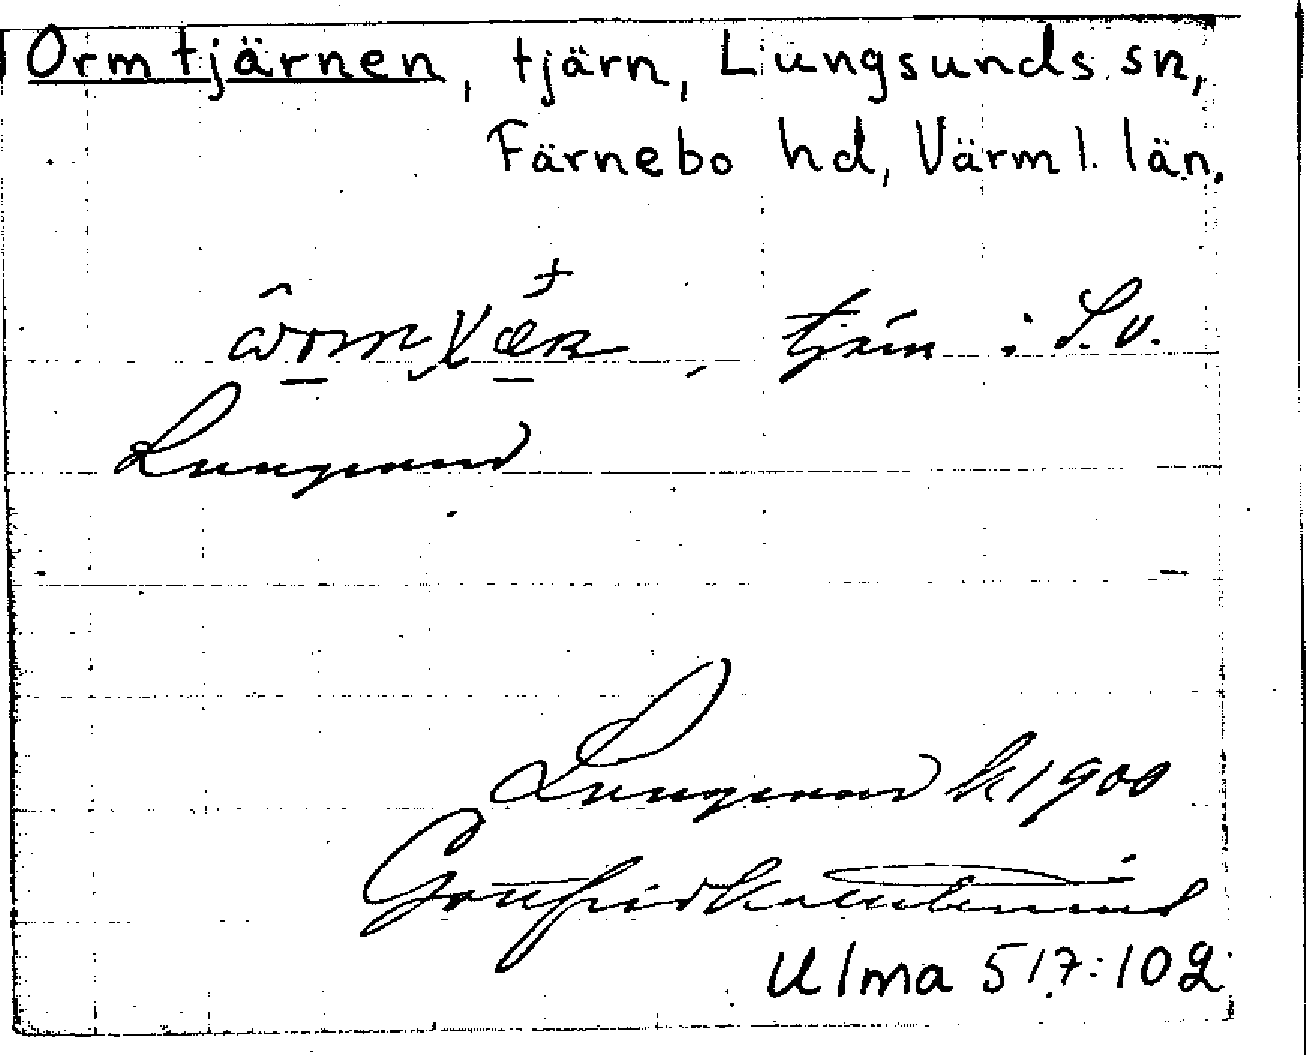 Ormtjärnen, tjärn, Lungsunds sn,
Färnebo hd, Värml. län.
tjärn i S.v.
Lungsund
Lungsund h 1900
Gottfrid Kallstenius
Ulma 517:102